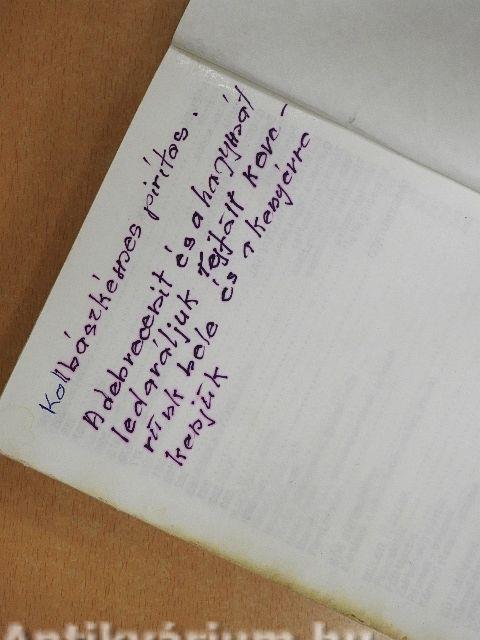 Kollbászkémes pirítos.
A debrecenit és a hagymát
ledaráljuk Tejfölt keve-
rünk bele és a kenyérre
kenjük
Antikvárium.hu